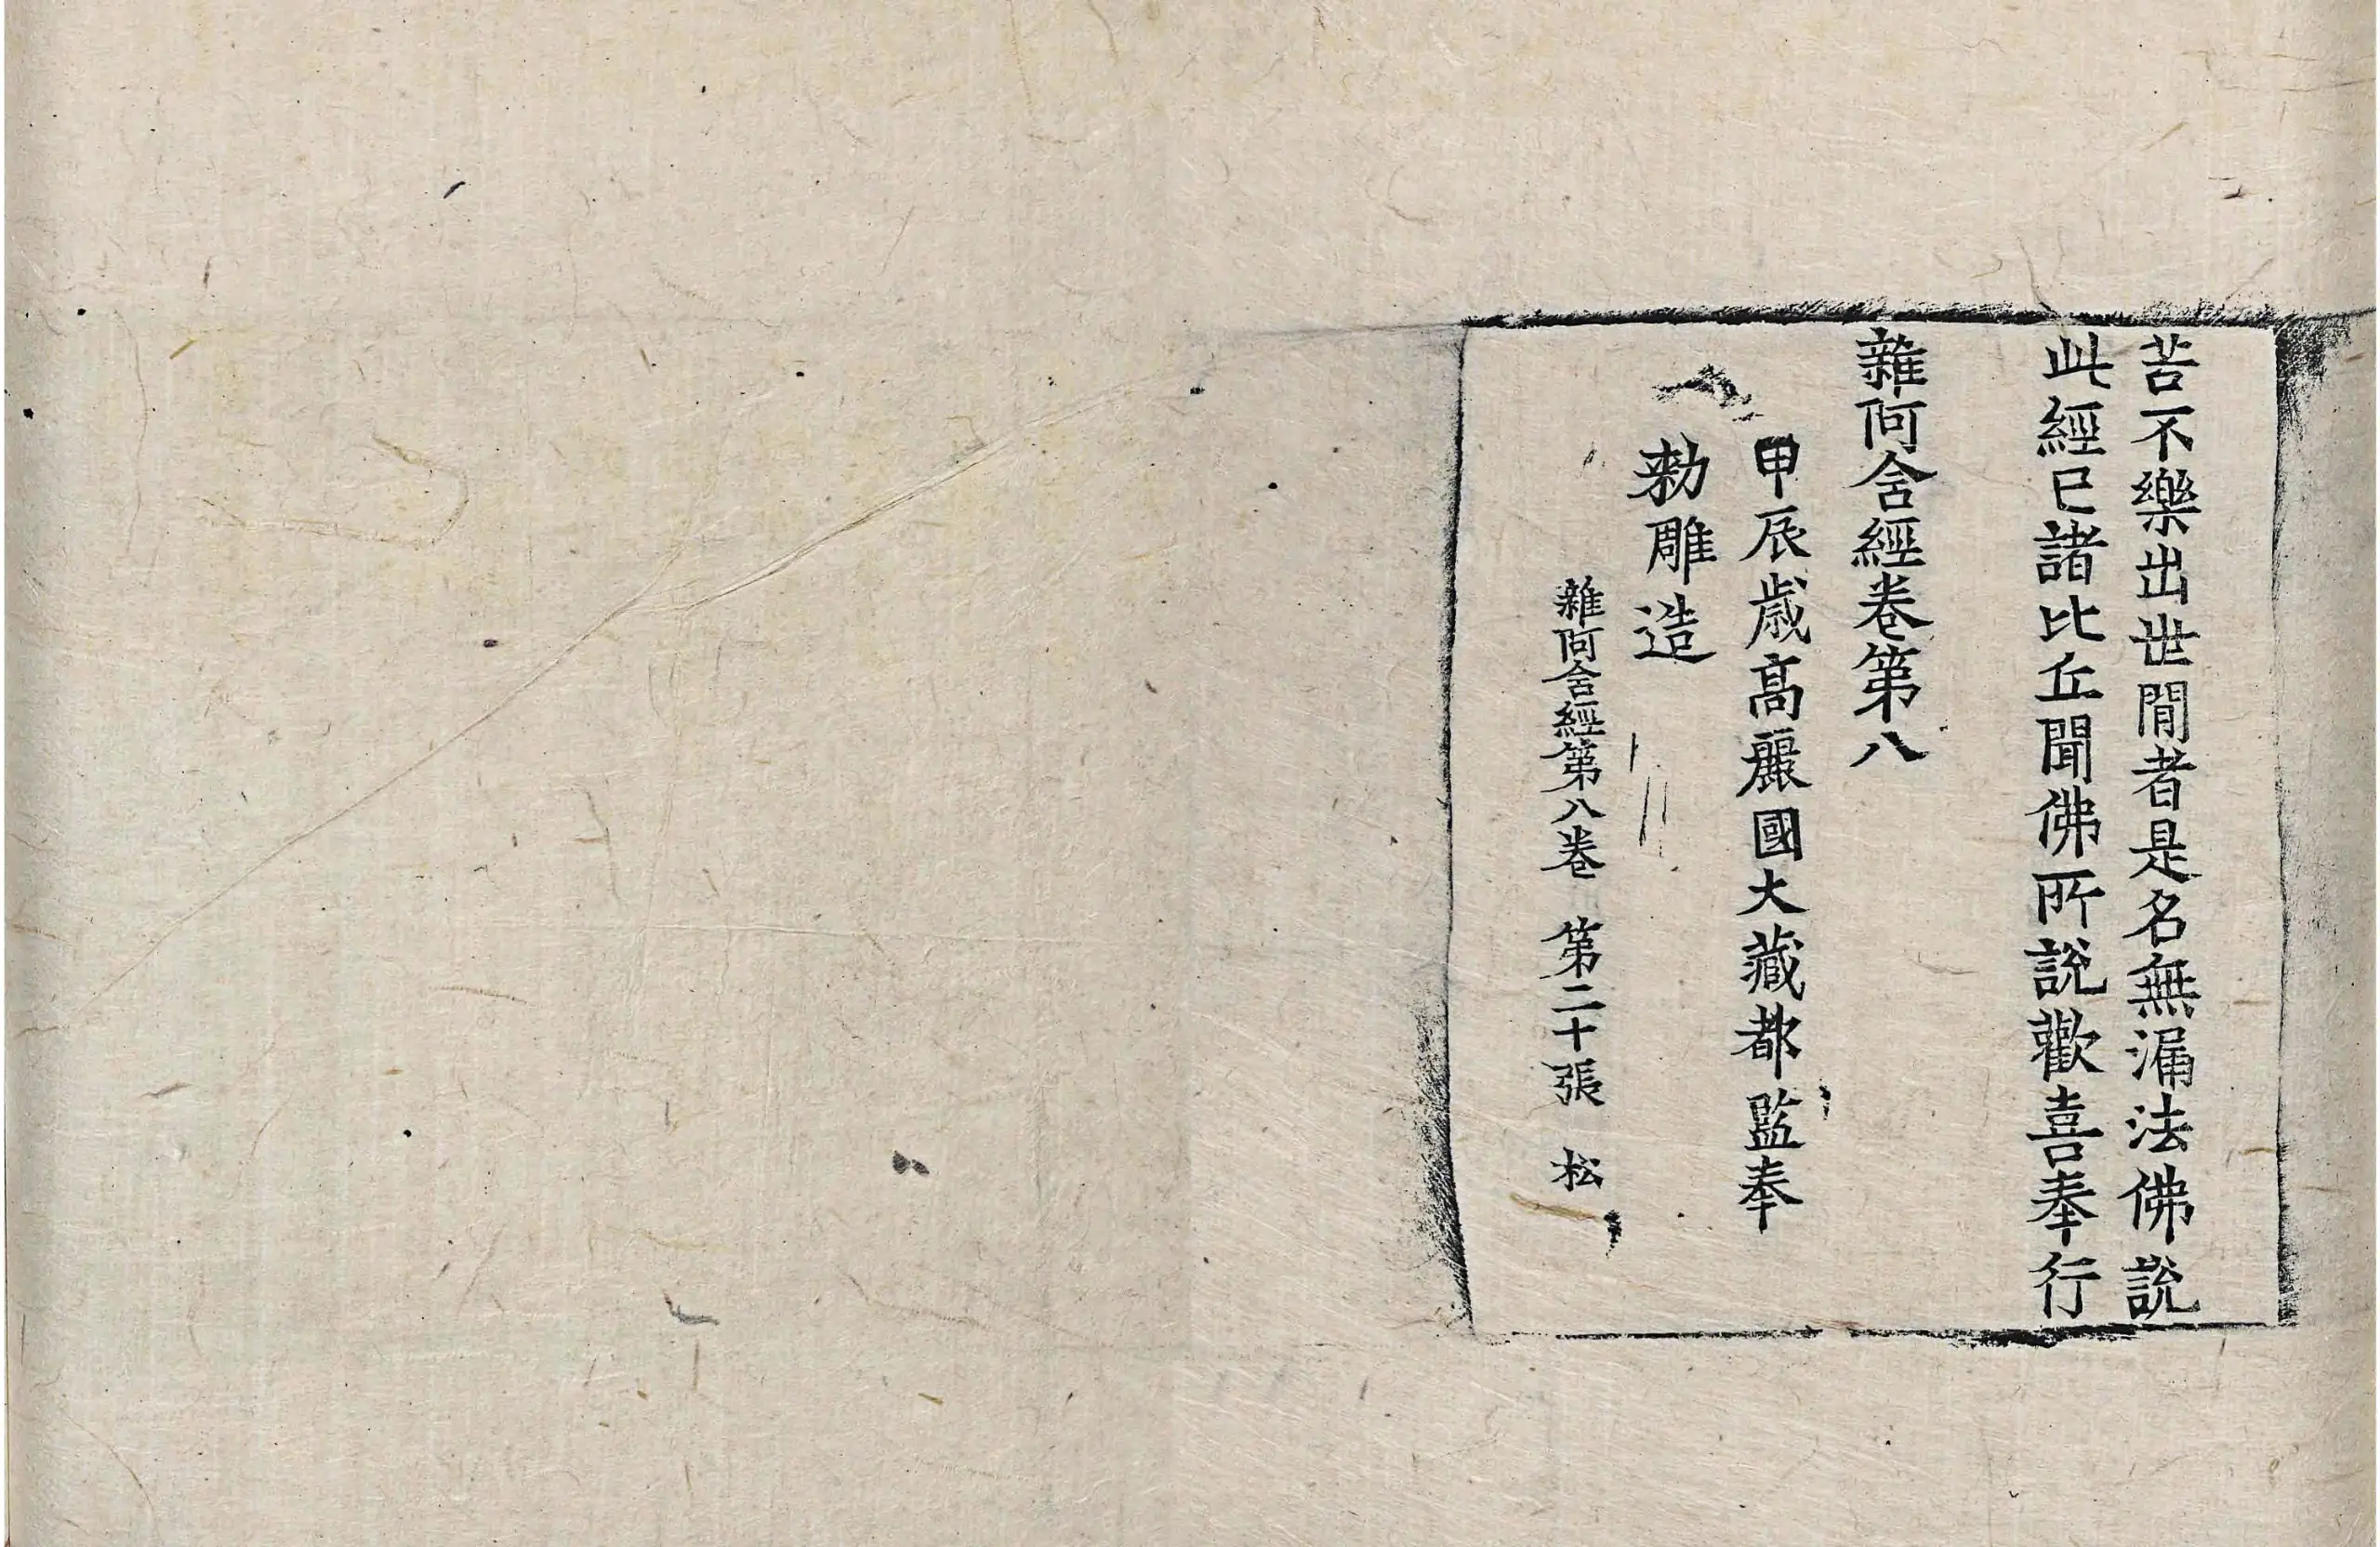 苦不樂出世間者是名無漏法佛說
此經已諸比丘聞佛所說歡喜奉行
雜阿含經卷第八
甲辰歲高麗國大藏都監奉
勑雕造
雜阿含經第八卷 第二十張 松